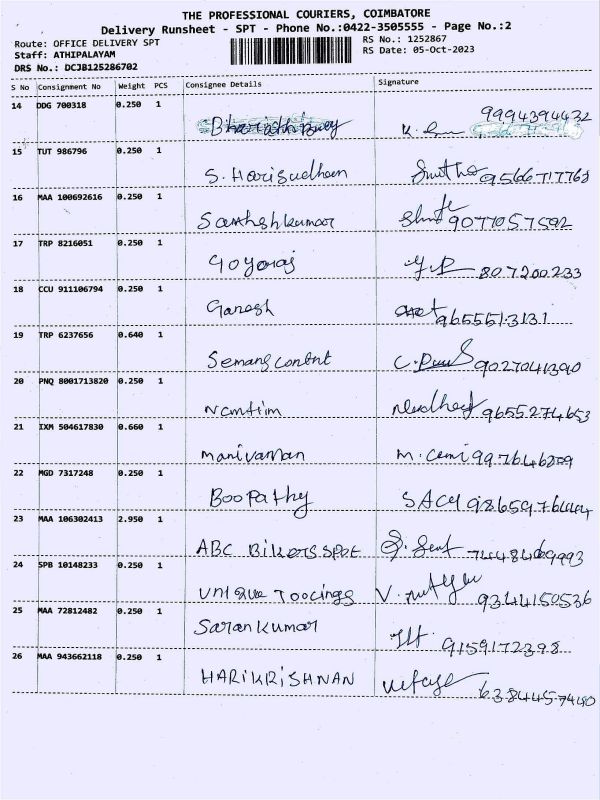 THE PROFESSIONAL COURIERS, COIMBATORE
Delivery Runsheet - SPT - Phone No.:0422-3505555 - Page No.:2
Route: OFFICE DELIVERY SPT RS No.: 1252867
Staff: ATHIPALAYAM RS Date: 05-Oct-2023
DRS No.: DCJB125286702
S No Consignment No Weight PCS Consignee Details Signature
14 DDG 700318 0.250 1
9994394432
15 TUT 986796 0.250 1
S. Harisudhan 9566717768
16 MAA 100692616 0.250 1
Santhshkumar 9077057592
17 TRP 8216051 0.250 1
807200233
18 CCU 911106794 0.250 1
Ganesh 9655513131
19 TRP 6237656 0.640 1
9027041390
20 PNQ 8001713820 0.250 1
9655274653
21 IXM 504617830 0.660 1
manivannan
22 MGD 7317248 0.250 1
BooPathy
23 MAA 106302413 2.950 1
ABC BIKERS SPOT
24 SPB 10148233 0.250 1
UNIQUE TOOLINGS 9344150536
25 MAA 72812482 0.250 1
Sarankumar
9159172398
26 MAA 943662118 0.250 1
HARIKRISHNAN 6384457480